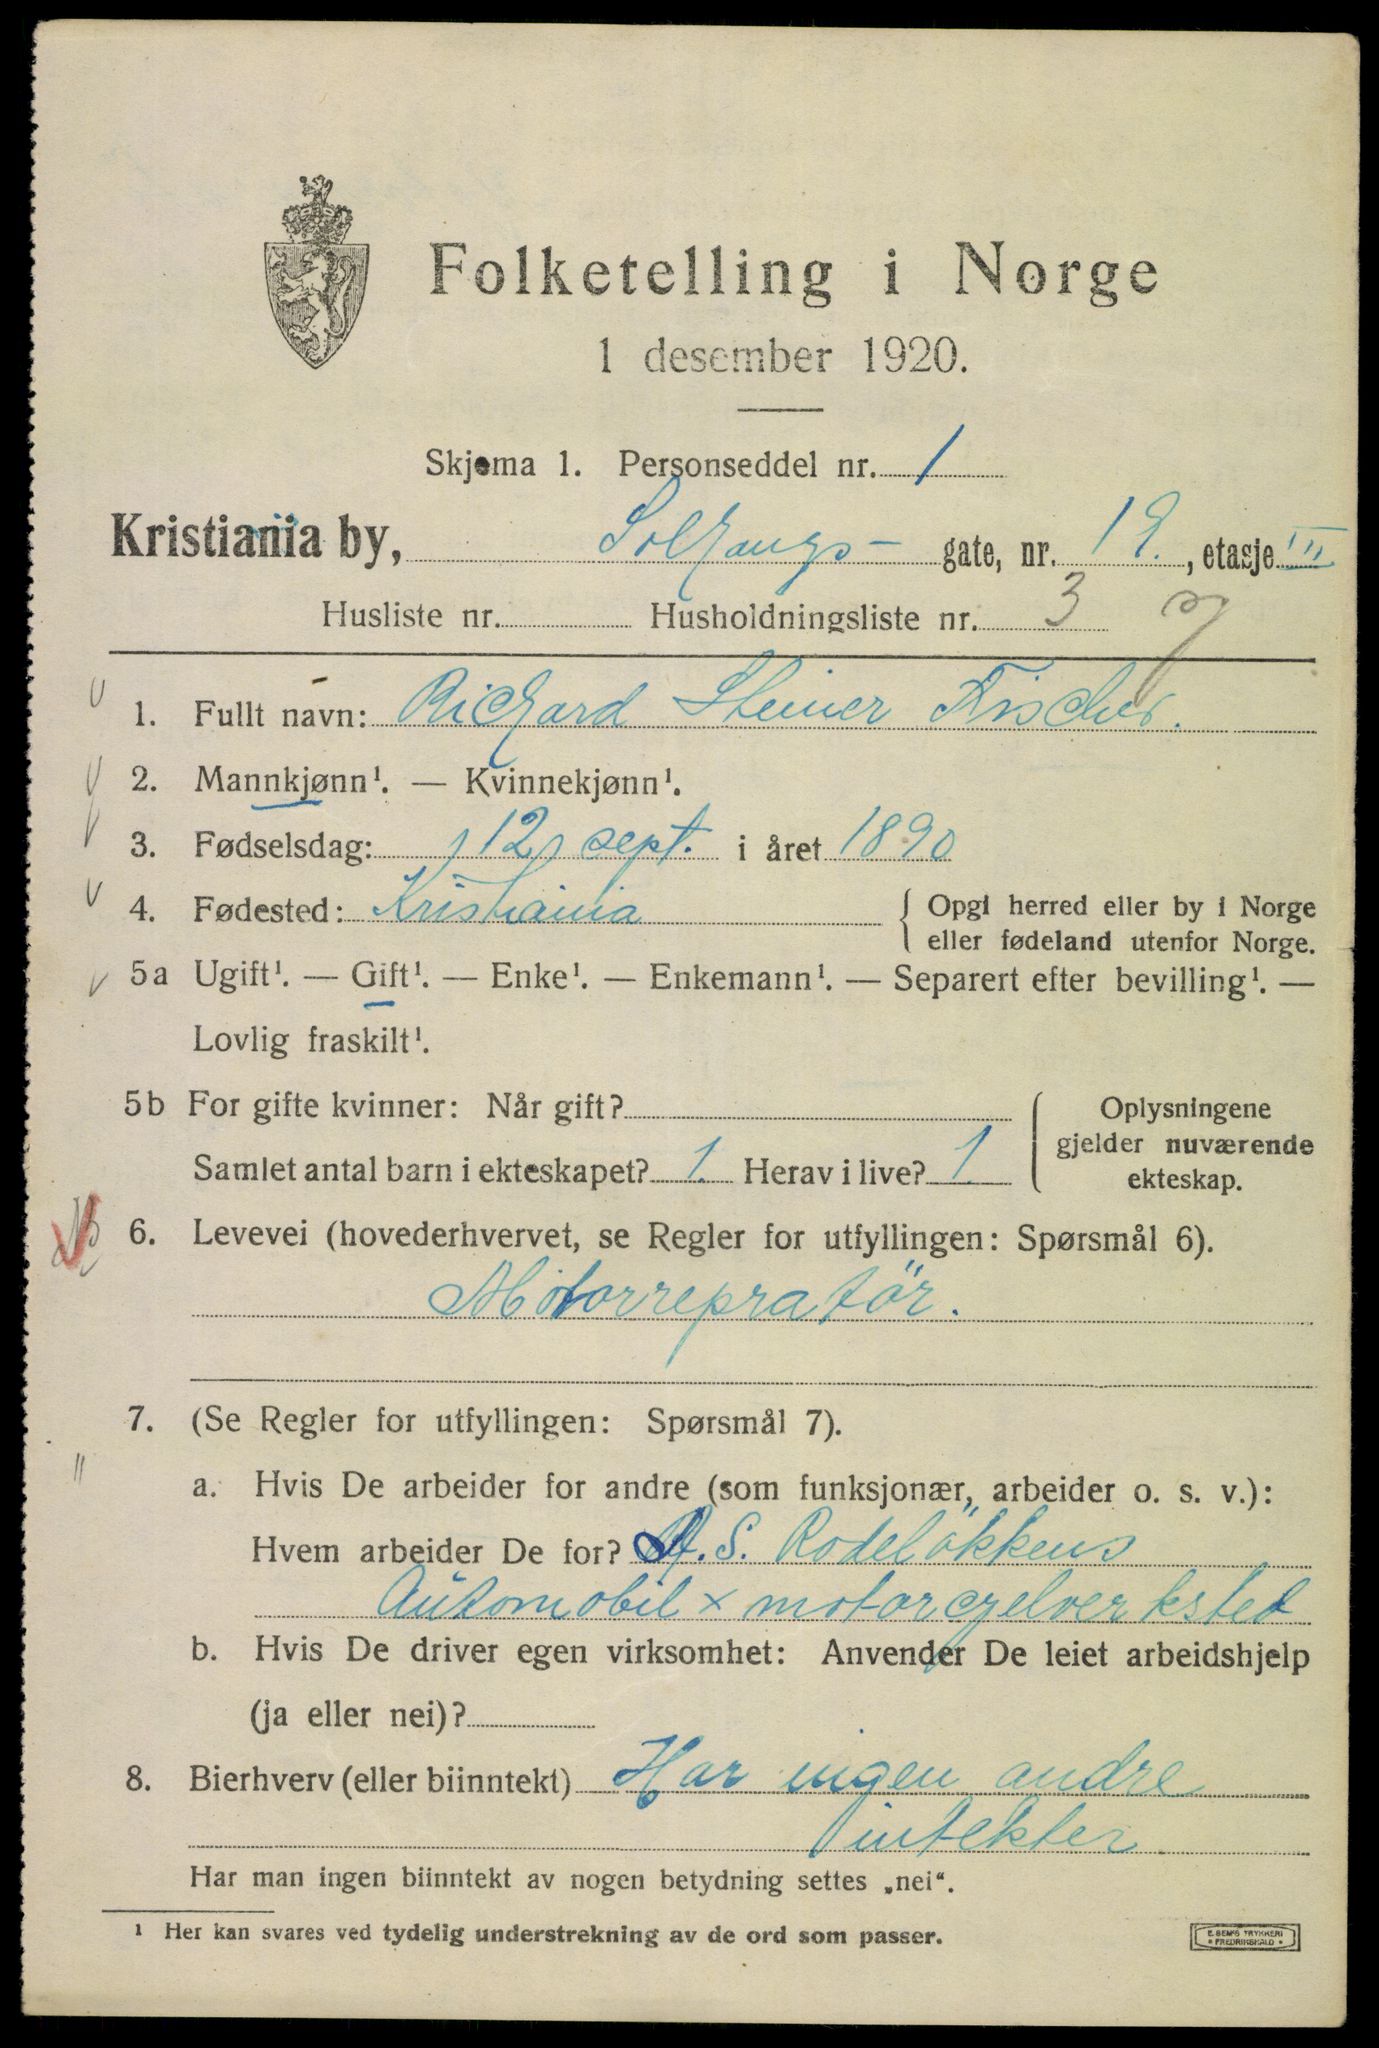 Folketelling i Norge
1 desember 1920.
Skjema 1. Personseddel nr. 1
Kristiania by, Solhaugs- gate, nr. 19., etasje III
Husliste nr. Husholdningsliste nr. 3
1. Fullt navn: Richard Steiner Fischer.
2. Mannkjønn¹. — Kvinnekjønn¹.
3. Fødselsdag: 12 sept. i året 1890
4. Fødested: Kristiania { Opgi herred eller by i Norge
eller fødeland utenfor Norge.
5a Ugift¹. — Gift¹. — Enke¹. — Enkemann¹. — Separert efter bevilling¹. —
Lovlig fraskilt¹.
5b For gifte kvinner: Når gift? { Oplysningene
gjelder nuværende
ekteskap.
Samlet antal barn i ekteskapet? 1. Herav i live? 1.
6. Levevei (hovederhvervet, se Regler for utfyllingen: Spørsmål 6).
Motorrepratör.
7. (Se Regler for utfyllingen: Spørsmål 7).
a. Hvis De arbeider for andre (som funksjonær, arbeider o. s. v.):
Hvem arbeider De for? A. S. Rodeløkkens
Automobil x motorcyelverksted
b. Hvis De driver egen virksomhet: Anvender De leiet arbeidshjelp
(ja eller nei)?
8. Bierhverv (eller biinntekt) Har ingen andre
intekter
Har man ingen biinntekt av nogen betydning settes „nei“.
¹ Her kan svares ved tydelig understrekning av de ord som passer.
E. SEM'S TRYKKERI
FREDRIKSHALD